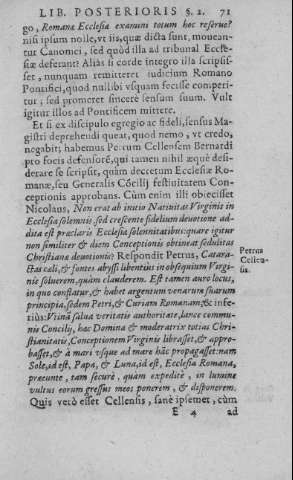 LIB. POSTERIORIS S. 2. 71
go, Romanæ Ecclesiæ exanimi totum hoc reserve?
nisi ipsum nolle, vt iis, quæ dicta sunt, moueantur
Canonici, sed quòd illa ad tribunal Ecclesiæ
deferant? Aliàs si corde integro illa scripsisset,
nunquam remitteret iudicium Romano
Pontifici, quod nullibi vsquam fecisse comperitur,
sed promeret sincerè sensum suum. Vult
igitur illos ad Pontificem mittere.
Et si ex discipulo egregio ac fideli, sensus Magistri
deprehendi queat, quod nemo, vt credo,
negabit; habemus Petrum Cellensem Bernardi
pro focis defensorē, qui tamen nihil æquè desiderare
se scripsit, quàm decretum Ecclesiæ Romanæ,
seu Generalis Cōcilij festiuitatem Conceptionis
approbans. Cùm enim illi obiecisset
Nicolaus, Non erat ab initio Natiuitas Virginis in
Ecclesia solemnis, sed crescente fidelium deuotione addita
est præclaris Ecclesiæ solennitatibus: quare igitur
non similiter & diem Conceptionis obtineat sedulitas
Christianæ deuotionis? Respondit Petrus, Cataractas
cæli, & fontes abyssi libentius in obsequium Virginis
soluerem, quàm clauderem. Est tamen auro locus,
in quo conflatur, & habet argentum venarum suarum
principia, sedem Petri, & Curiam Romanam; & inferiùs:
Vtinā salua veritatis authoritate, laxet communis
Concilij, hæc Domina & moderatrix totius Christianitatis,
Conceptionem Virginis librasset, & approbasset,
& à mari vsque ad mare hāc propagasset: nam
Sole, id est, Papa, & Luna, id est, Ecclesia Romana,
præeunte, tam securè, quàm expeditè, in lumine
vultus eorum gressus meos ponerem, & disponerem.
Quis verò esset Cellensis, sanè ipsemet, cùm
E 4 ad
Petrus
Cellensis.